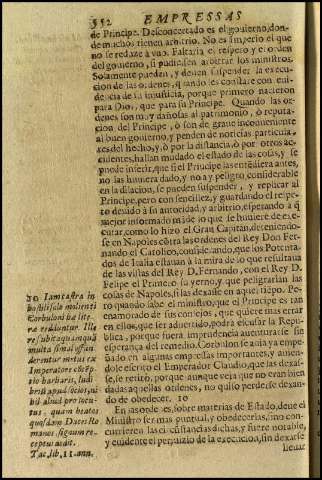 552 EMPRESSAS
de Principe. Desconcertado es el gouierno, don-
de muchos tienen arbitrio. No es imperio el que
no se reduze à vno. Faltaria el respeto y el orden
del gouierno, si pudiessen arbitrar los ministros.
Solamente pueden, y deuen suspender la execu-
cion de las ordenes, quando les constare con eui-
dencia de su injusticia, porque primero nacieron
para Dios, que para su Principe. Quando las or-
denes son muy dañosas al patrimonio, ò reputa-
cion del Principe, ò son de graue inconueniente
al buen gouierno, y penden de noticias particula-
res del hecho, y ò por la distancia, ò por otros ac-
cidentes, hallan mudado el estado de las cosas, y se
puede inferir, que si el Principe las entēdiera antes,
no las huuiera dado, y no ay peligro considerable
en la dilacion, se pueden suspender, y replicar al
Principe, pero con senzillez, y guardando el respe-
to deuido à su autoridad, y arbitrio, esperando à q̄
mejor informado mãde lo que se huuiere de exe-
cutar, como lo hizo el Gran Capitan, deteniendo-
se en Napoles cõtra las ordenes del Rey Don Fer-
nando el Catolico, considerando, que los Potenta-
dos de Italia estauan à la mira de lo que resultaua
de las vistas del Rey D. Fernando, con el Rey D.
Felipe el Primero su yerno, y que peligrarian las
cosas de Napoles, si las dexase en aquel tiēpo. Pe-
ro quando sabe el ministro, que el Principe es tan
enamorado de sus consejos, que quiere mas errar
en ellos, que ser aduertido, podrá escusar la Repu-
blica, porque fuera imprudencia auenturarse sin
esperança del remedio. Corbulon se auia ya empe-
ñado en algunas empressas importantes, y auien-
dole escrito el Emperador Claudio, que las dexas-
se, se retirò, porque aunque veya que no eran bien
dadas aquellas ordenes, no quiso perderse dexan-
do de obedecer. 10
En las ordenes, sobre materias de Estado, deue el
Ministro ser mas puntual, y obedecerlas, sino con-
currieren las circũstancias dichas, y fuere notable,
y euidente el perjuizio de la execucion, sin dexarse
lleuar
10 Iam castra in
hostili solo molienti
Corbuloni hæ lite-
ræ redduntur. Ille
re subita, quanquā
multa simul offun-
derentur metus ex
Imperatore cõtēp-
tio barbaris, ludi-
brium apud socios, ni-
hil aliud prolocu-
tus, quam beatos
quosdam Duces Ro-
manos, signum re-
ceptui dedit.
Tac. lib. 11. ann.